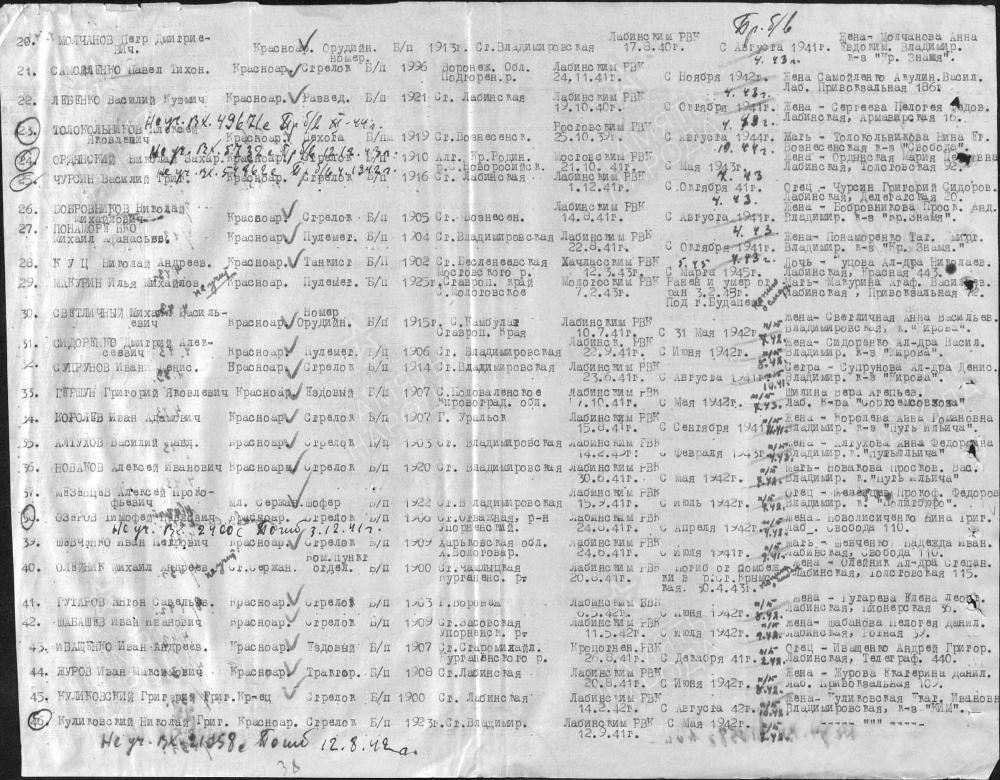 Бр. б/в
20. МОЛЧАНОВ Петр Дмитриевич. Красноар. Орудийн. номер. Б/п 1913г. Ст.Владимировская Лабинским РВК 17.8.40г. С Августа 1941г. Жена- Молчанова Анна Евдоким. Владимир. к-в "Кр. Знамя".
4.43г.
21. САМОЙЛЕНКО Павел Тихон. Красноар. Стрелок Б/п 1996 Воронеж. Обл. Подгорен.р. Лабинским РВК 24.11.41г. С Ноября 1942г. Жена Самойленко Акулин.Васил. Лаб. Привокзальная 186г
4.43г.
22. ЛЕВЕНКО Василий Кузмич Красноар. Развед. Б/п 1921 Ст. Лабинская Лабинским РВК 19.10.40г. С Октября 1941г. Жена - Сергеева Пелогея Федов. Лабинская, Армавирская 16.
4.43г.
Не уч. вх. 49671с Пр. б/в XI-44г.
23. ТОЛОКОЛЬНИКОВ Алексей Яковлевич Красноар. Пехота Б/п 1919 Ст.Вознесенск. Ростовским РВК 25.10.39г. С Августа 1944г. Мать- Толокольникова Нина Ег. Вознесенская к-в "Свобода".
10.44г.
24. ОРДЫНСКИЙ Николай Захар. Красноар. Стрелок Б/п 1910 Алт. Кр.Родин. р.С.Новоросийск. Мостовским РВК 21.10. 41г. С Мая 1943г. Жена- Ордынская Мария Лабинская, Толстовская 92.
25. ЧУРСИН Василий Григ. Красноар. Стрелок Б/п 1916 Ст. Лабинская Лабинским РВК 1.12.41г. С Октября 41г. Отец - Чурсин Григорий Сидоров. Лабинская, Делегатская 20.
4.43
26. БОБРОВНИКОВ Николай Михайлович Красноар. Стрелок Б/п 1905 Ст. Вознесен. Лабинским РВК 14.8.41г. С Августа 1941г Жена - Бобровникова Проск. Анд. Владимир. к-в "Кр.Знамя".
4.43
27. ПОНАМОРЕНКО Михаил Афанасьев. Красноар. Пулемет. Б/п 1904 Ст.Владимировская Лабинским РВК 22.8.41г. С Октября 1941г. Жена- Понаморенко Тат. Владимир. к-в "Кр. Знамя."
4.43г.
28. К У Ц Николай Андреев. Красноар. Танкист Б/п 1902 Ст.Бесленеевская Мостовского р. Хачласским РВК 12.3.43г. С Марта 1945г. Дочь - Куцова Ал-дра Николаев. Лабинская, Красная 443.
5.45
29. МАКУРИН Илья Михайлов. Красноар. Пулемет. Б/п 1925г. Ставроп. край С.Молотовское Молотовским РВК 7.2.43г. Ранен и умер от ран 3.2.45г. Под г.Будапешт Мать- Макурина Агаф. Лабинская, Привокзальная 72.
30. СВЕТЛИЧНЫЙ Михаил Васильевич Красноар. Номер Орудийн. Б/п 1915г. С.Камбулат Ставроп. Края Лабинским РВК 10.7.41г. С 31 Мая 1942г. Жена- Светличная Анна Васильев. Владимировская, к."Кирова".
31. СИДОРЕНКО Дмитрий Алексеевич Красноар. Пулемет. Б/п 1906 Ст. Владимировская Лабинск. РВК 22.9.41г. С Июня 1942г. Жена- Сидоренко Ал-дра Васил. Владимир. к-в "Кирова".
32. СУПРУНОВ Иван Денис. Красноар. Стрелок Б/п 1914 Ст.Владимировская Лабинским РВК 23.6.41г. С Августа 1941г Сестра - Супрунова Ал-дра Денис. Владимир. к-в "Кирова".
33. ГЕРШУН Григорий Яковлевич Красноар. Ездовый Б/п 1907 Кировоград. обл. Лабинским РВК 7.10.41г. С Мая 1942г. Шилина Вера Лаб.
34. КОРОЛЕВ Иван Адамович Красноар. Стрелок Б/п 1907 Г. Уральск Лабинским РВК 15.8.41г. С Сентября 1941г. Жена - Королева Анна Романовна Владимир. к-в "Путь Ильича".
35. АЛТУХОВ Василий Красноар. Стрелок Б/п 1903 Ст. Владимировская Лабинским РВК 14.2.43г: С Февраля 1943г. Жена - Алтухова Анна Федоровна Владимир. к."Путь Ильича"
36. НОВАКОВ Алексей Иванович Красноарм. Стрелок Б/п 1920 Ст. Владимировская Лабинским РВК 30.6.41г. С Мая 1942г. Мать- Новакова Просков. Вас. Владимир. к."Путь Ильича"
37. МЕЗЕНЦЕВ Алексей Прокофьевич мл. Сержан. Шофер Б/п 1922 Ст.Владимировская Лабинским РВК 15.9.41г. С Июль 1942г. Отец - Мезенцев Прокоф. Федоров Владимир. к-в
38. ОЗЕРОВ Тимофей Красноар. Стрелок Б/п 1906 Ст.Отважная, р-н Лабинским РВК 24.6.41г. С Апреля 1942г. Жена- Новосиченко Нина Григ. Лаб. Свобода 110.
Не уч. Вх. 2400с Погиб 3.12.41г.
39. ШЕВЧЕНКО Иван Петрович Красноар. Стрелок Б/п 1909 Харьковская обл. Х.Вологовар. Лабинским РВК 24.6.41г. С Июля 1941г. Мать- Шевченко Надежда Иван. Лабинская, Свобода 110.
40. ОЛЕЙНИК Михаил Андреев. Ст.Сержан. отдел. Б/п 1900 Ст.Чамлыцкая Курганенс. р. Лабинским РВК 20.8.41г. Погиб от бомбежки в р.Ст.Крымская. 30.4.43г. Жена - Олейник Ал-дра Степан. Лабинская, Толстовская 115.
41. ГУТАРОВ Антон Савельев. Красноар. Стрелок Б/п 1903 Г.Воронеж Лабинским РВК 6.5.42г. С Июня 1942г. Жена- Гутарева Елена Леонв. Лабинская, Пионерская 36.
42. ШАБАШЕВ Иван Иванович Красноар. Стрелок Б/п 1909 Ст.Засовская Упорненск. р. Лабинским РВК 11.5.42г. С Июля 1942г. Жена- Шабанова Пелогея Данил. Лабинская, Ротная 39.
43. ИВАЩЕНКО Иван Андреев. Красноар. Ездовый Б/п 1907 Ст.Старомихайл. Курганенского р. Кропоткен.РВК 26.8.41г. С Декабря 41г. Отец - Иващенко Андрей Григор. Лабинская, Телеграф. 440.
44. ЖУРОВ Иван Максимович Красноар. Трактор. Б/п 1908 Ст.Лабинская Лабинским РВК 20.6.41г. С Июня 1942г. Жена - Журова Екатерина Данил. Лаб. Привокзальная 109.
45. КУЛИКОВСКИЙ Григорий Григ.Кр-ец Стрелок Б/п 1900 Ст. Лабинская Лабинским РВК 14.2.42г. С Августа 42г. Жена- Куликовская Ефаг. Ивановн Владимировская, к-в "КИМ".
46. Куликовский Николай Григ. Красноар. Стрелок Б/п 1923г. Ст.Владимир. Лабинским РВК 12.9.41г. С Мая 1942г. ----- """ -----
Не уч. вх. 21058с Погиб 12.8.42г.
38